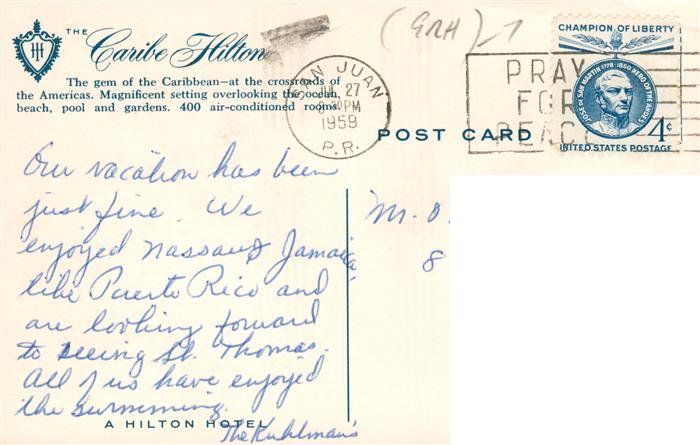 THE
Caribe Hilton
The gem of the Caribbean—at the crossroads of
the Americas. Magnificent setting overlooking the ocean,
beach, pool and gardens. 400 air-conditioned rooms.
SAN JUAN
JUL 27
PM
1959
P.R.
(GRH)-7
PRAY
FOR
PEACE
CHAMPION OF LIBERTY
JOSE DE SAN MARTIN 1778-1850 HERO OF THE ANDES
4¢
UNITED STATES POSTAGE
POST CARD
Our vacation has been
just fine. We
enjoyed Nassau & Jamaica,
like Puerto Rico and
are looking forward
to seeing St. Thomas.
All of us have enjoyed
the swimming.
The Kuhlman's
M. O.
8
A HILTON HOTEL